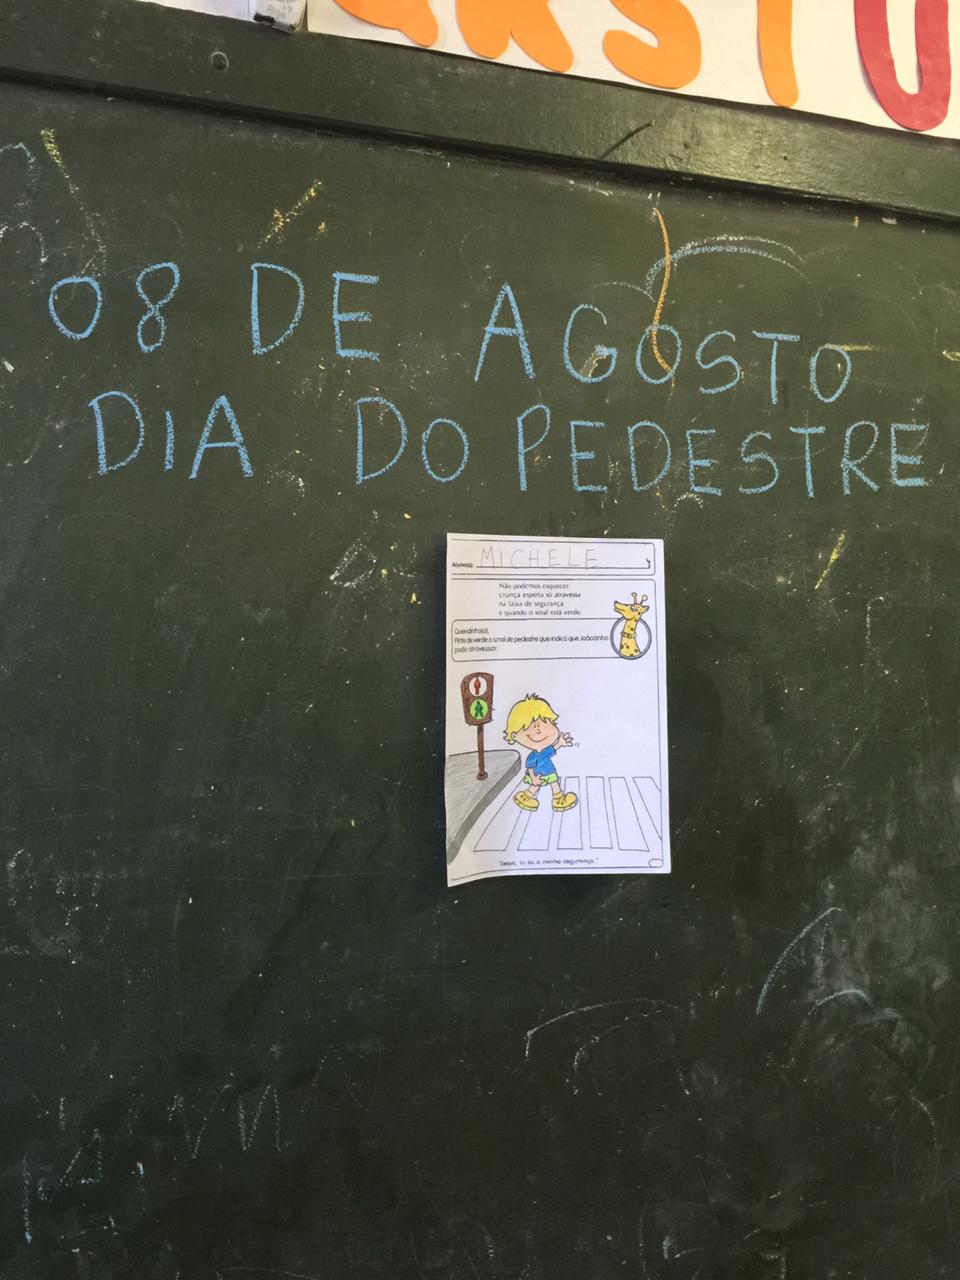 08 DE AGOSTO
DIA DO PEDESTRE
Aluno(a): MICHELE
Não podemos esquecer:
criança esperta só atravessa
na faixa de segurança
e quando o sinal está verde.
Queridinho(a),
Pinte de verde o sinal de pedestre que indica que Joãozinho
pode atravessar.
"Jesus, tu és a minha segurança."